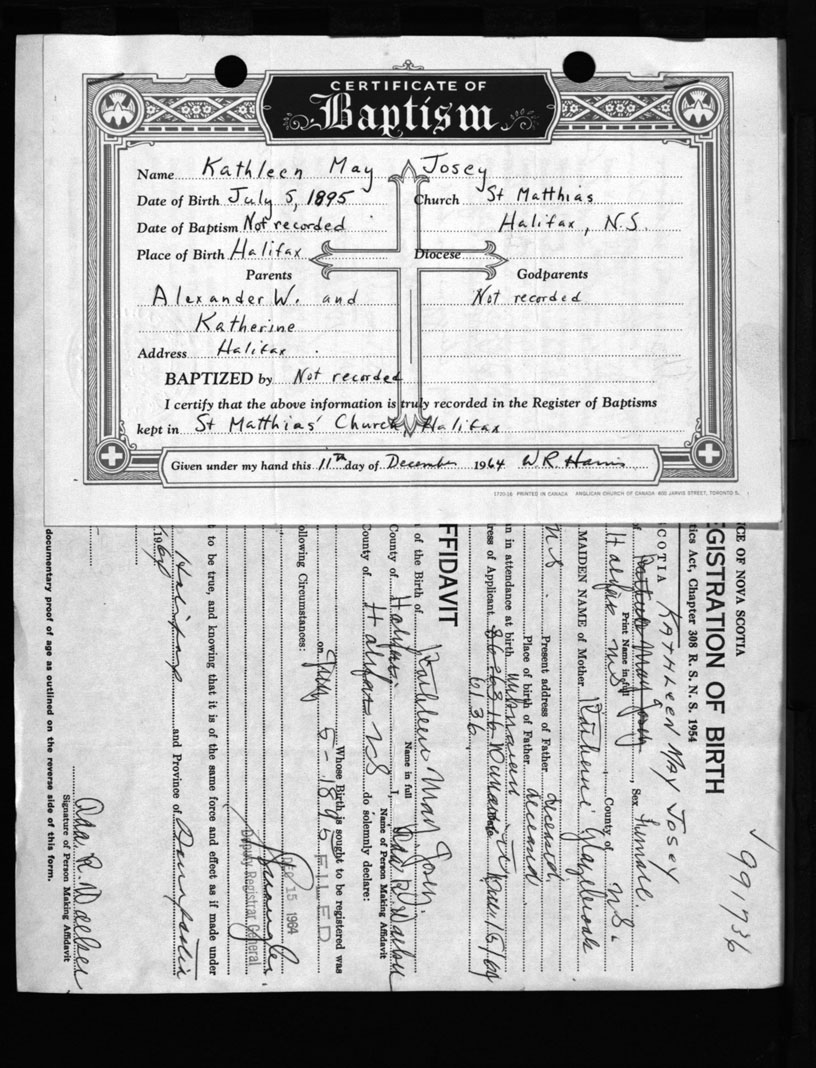 CERTIFICATE OF
Baptism
Name Kathleen May Josey
Date of Birth July 5, 1895 Church St Matthias
Date of Baptism Not recorded Halifax, N.S.
Place of Birth Halifax Diocese
Parents Godparents
Alexander W. and Not recorded
Katherine
Address Halifax
BAPTIZED by Not recorded
I certify that the above information is truly recorded in the Register of Baptisms
kept in St Matthias' Church Halifax
Given under my hand this 11th day of December 1964 W R Harris
1720-16 PRINTED IN CANADA ANGLICAN CHURCH OF CANADA 600 JARVIS STREET, TORONTO 5.
√ 991736
CE OF NOVA SCOTIA
EGISTRATION OF BIRTH
tics Act, Chapter 308 R. S. N. S. 1954
KATHLEEN MAY JOSEY
SCOTIA
May Josey, Sex Female.
Print Name in full
Halifax NS County of N.S.
MAIDEN NAME of Mother Katherine
NS. Present address of Father deceased.
Place of birth of Father deceased
n in attendance at birth unknown
ress of Applicant
6136
FFIDAVIT
t of the Birth of Kathleen May Josey.
Name in full
County of Halifax I, Ada R. Walker
Name of Person Making Affidavit
County of Halifax NS do solemnly declare:
Whose Birth is sought to be registered was
on July 5-1895 FILED
ollowing Circumstances:
DEC 15 1964
Deputy Registrar General
t to be true, and knowing that it is of the same force and effect as if made under
Halifax and Province of Nova Scotia
1964
Ada R. Walker
Signature of Person Making Affidavit
documentary proof of age as outlined on the reverse side of this form.